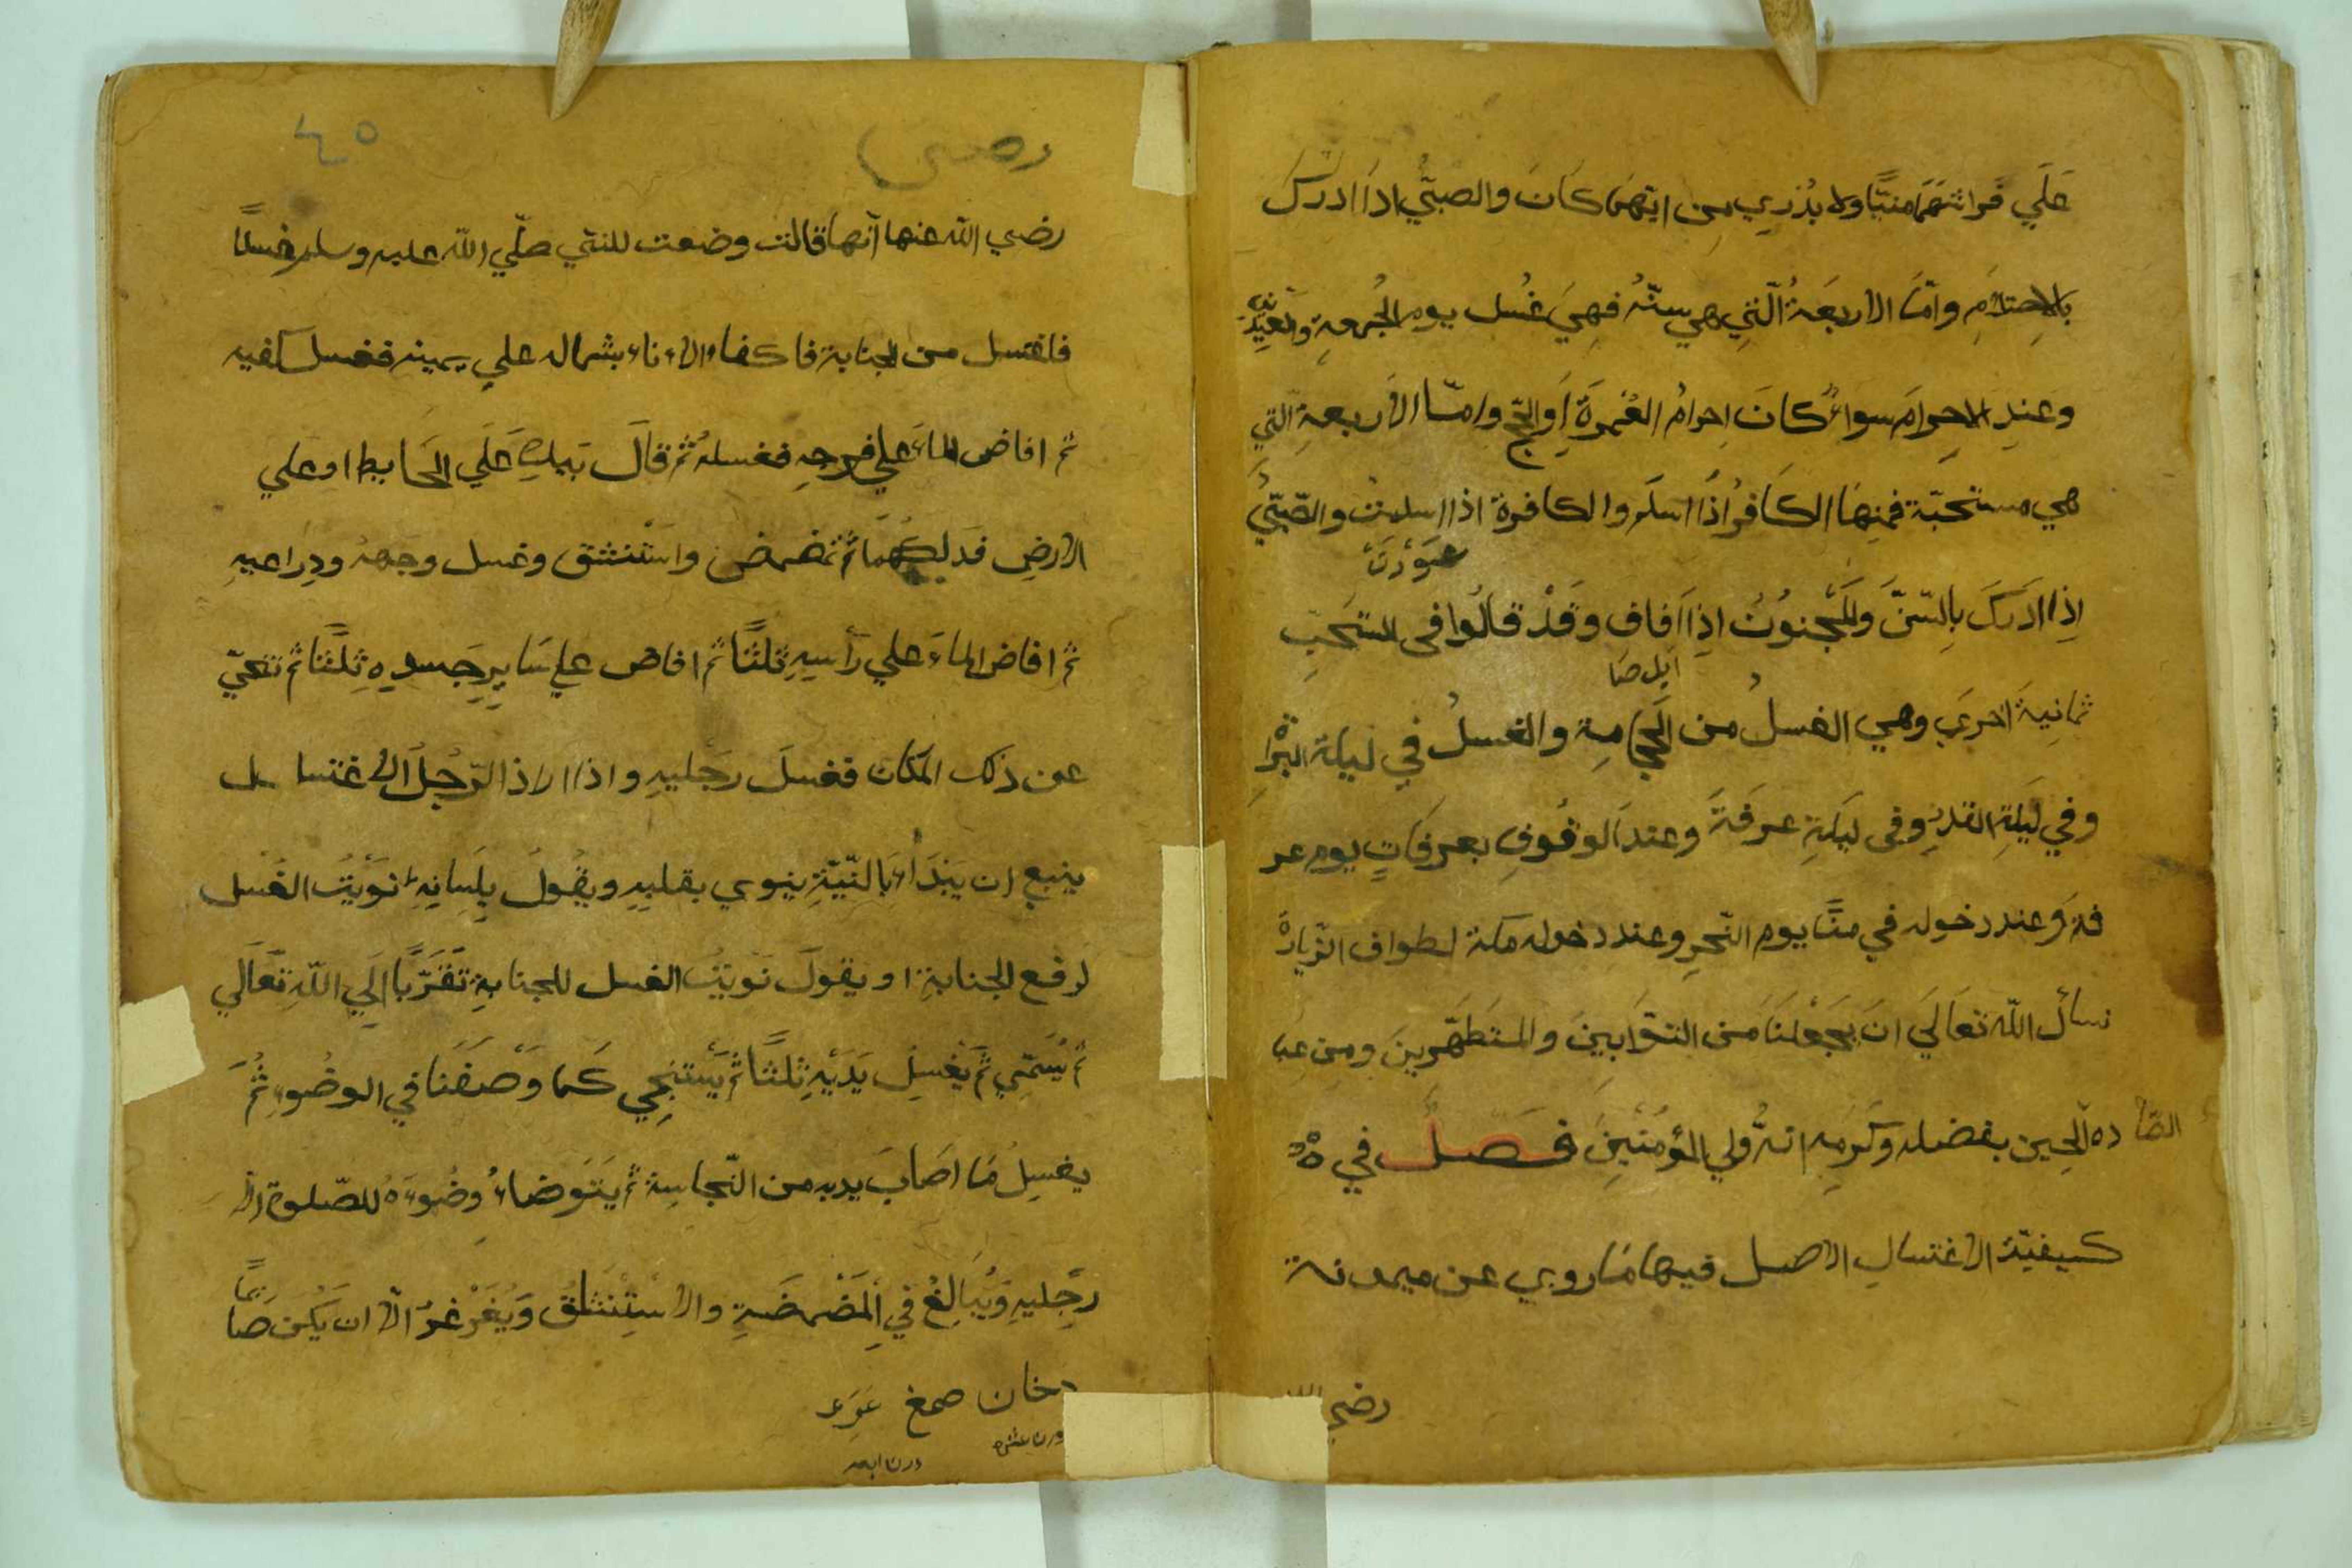 عَلَي فراشهَمَا منيًّا ولا يُدْرِي مِن ايّهمَا كَانَ والصبيّ اذَا ادركَ
بالاحتلَامِ وامّا الاربعَةُ الّتِي هي سنّةُ فهِيَ غُسل يوم الجُمعةِ والعيدَين
وعندِ الاحرامَ سواءً كانَ احرامُ العُمرَةَ اَو الحجّ وامّا الاربعةِ الّتي
هي مستحَبّة فمِنهَا الكَافرُ اذُا اسلَم والكافرة اذا اسلمتْ والصّبيُّ
عورَت
اِذا ادَركَ بِالسّنَّ والمَجْنوُنُ اذِا اَفاف وَقَدْ قالُوا في المستحَبِّ
ثمانيةَ اخرَي وهي الغسلُ من الحِجامةِ والغسلُ في ليلة البَرْا
وفي لَيلَةِ القدرِ وفي ليلَةِ عرفَةَ وعندَ الوقُوفِ بعرفَاتٍ يوم عر
فة وَعند دخوله في منًا يوم النّحرِ وعند دخوله مكة لطواف الزّيارَة
نسألُ اللّه تعَالَي انَ يجَعْلنَا مَن التّوّابينَ والمتَطهّرِينَ ومِن عبا
ده الصّالحِين بفضله وكرَمِه انهُ وَلي المؤمنْينِ فَصَلُ في
كيفيّة الاغتسالِ الاصل فيها مَا روي عن ميمونة
رضي الله
رضي
٤٥
رضي اللّه عنها اَنّها قالت وضعت للنبي صلّي اللّه عليه وسلم غسلاً
فاغتسل من الجنابة فاكفاء الاناء بشماله علي يمينه فغسل كفيه
ثم افاض الماءَ علي فرجِه فغسلهُ ثُم قالَ بَيدِه عَلَي الحَايط او علي
الارضِ فدَلكهُمَا ثمُ تمضمض واسَتْنشق وغسل وجههُ وذِرَاعيهِ
ثم افاض الماءَ علي رَأسِهِ ثلثًا ثم افاض علي سَايرِ جَسدِه ثلثًا ثم تنحّيّ
عن ذلك المكان فغسلَ رجْليهِ واذا اراد الرّجُلُ الاغتسا سل
ينبع ان يَبَدَأ بَالنّيّةِ ينوي بقلبهِ ويقُولُ بِلَسانِهِ نوَيْتُ الغُسْل
لرفع الجنابةِ او يقولَ نَوَيتُ الغسل للجنابةِ تَقَرُّبًا اِلَي اللّهِ تعَالَي
ثم يُسَمّي ثمَّ يَغْسِلُ يَدَيْهِ ثلثاً ثمَّ يَسْتنِجي كَما وَصَفَنَا في الوضُوءِ ثُمَّ
يغسِلُ مَا اصَابَ يديه من النّجاسِة ثم يَتَوضاءُ وضُوءَهُ للصّلوة الا
رجْليهِ ويُبَالِغُ في المَضْمضَةِ والاسْتِنشاق وَيُغَرْغرُ الاّ ان يَكُن صَائمًا
دخان صمغ